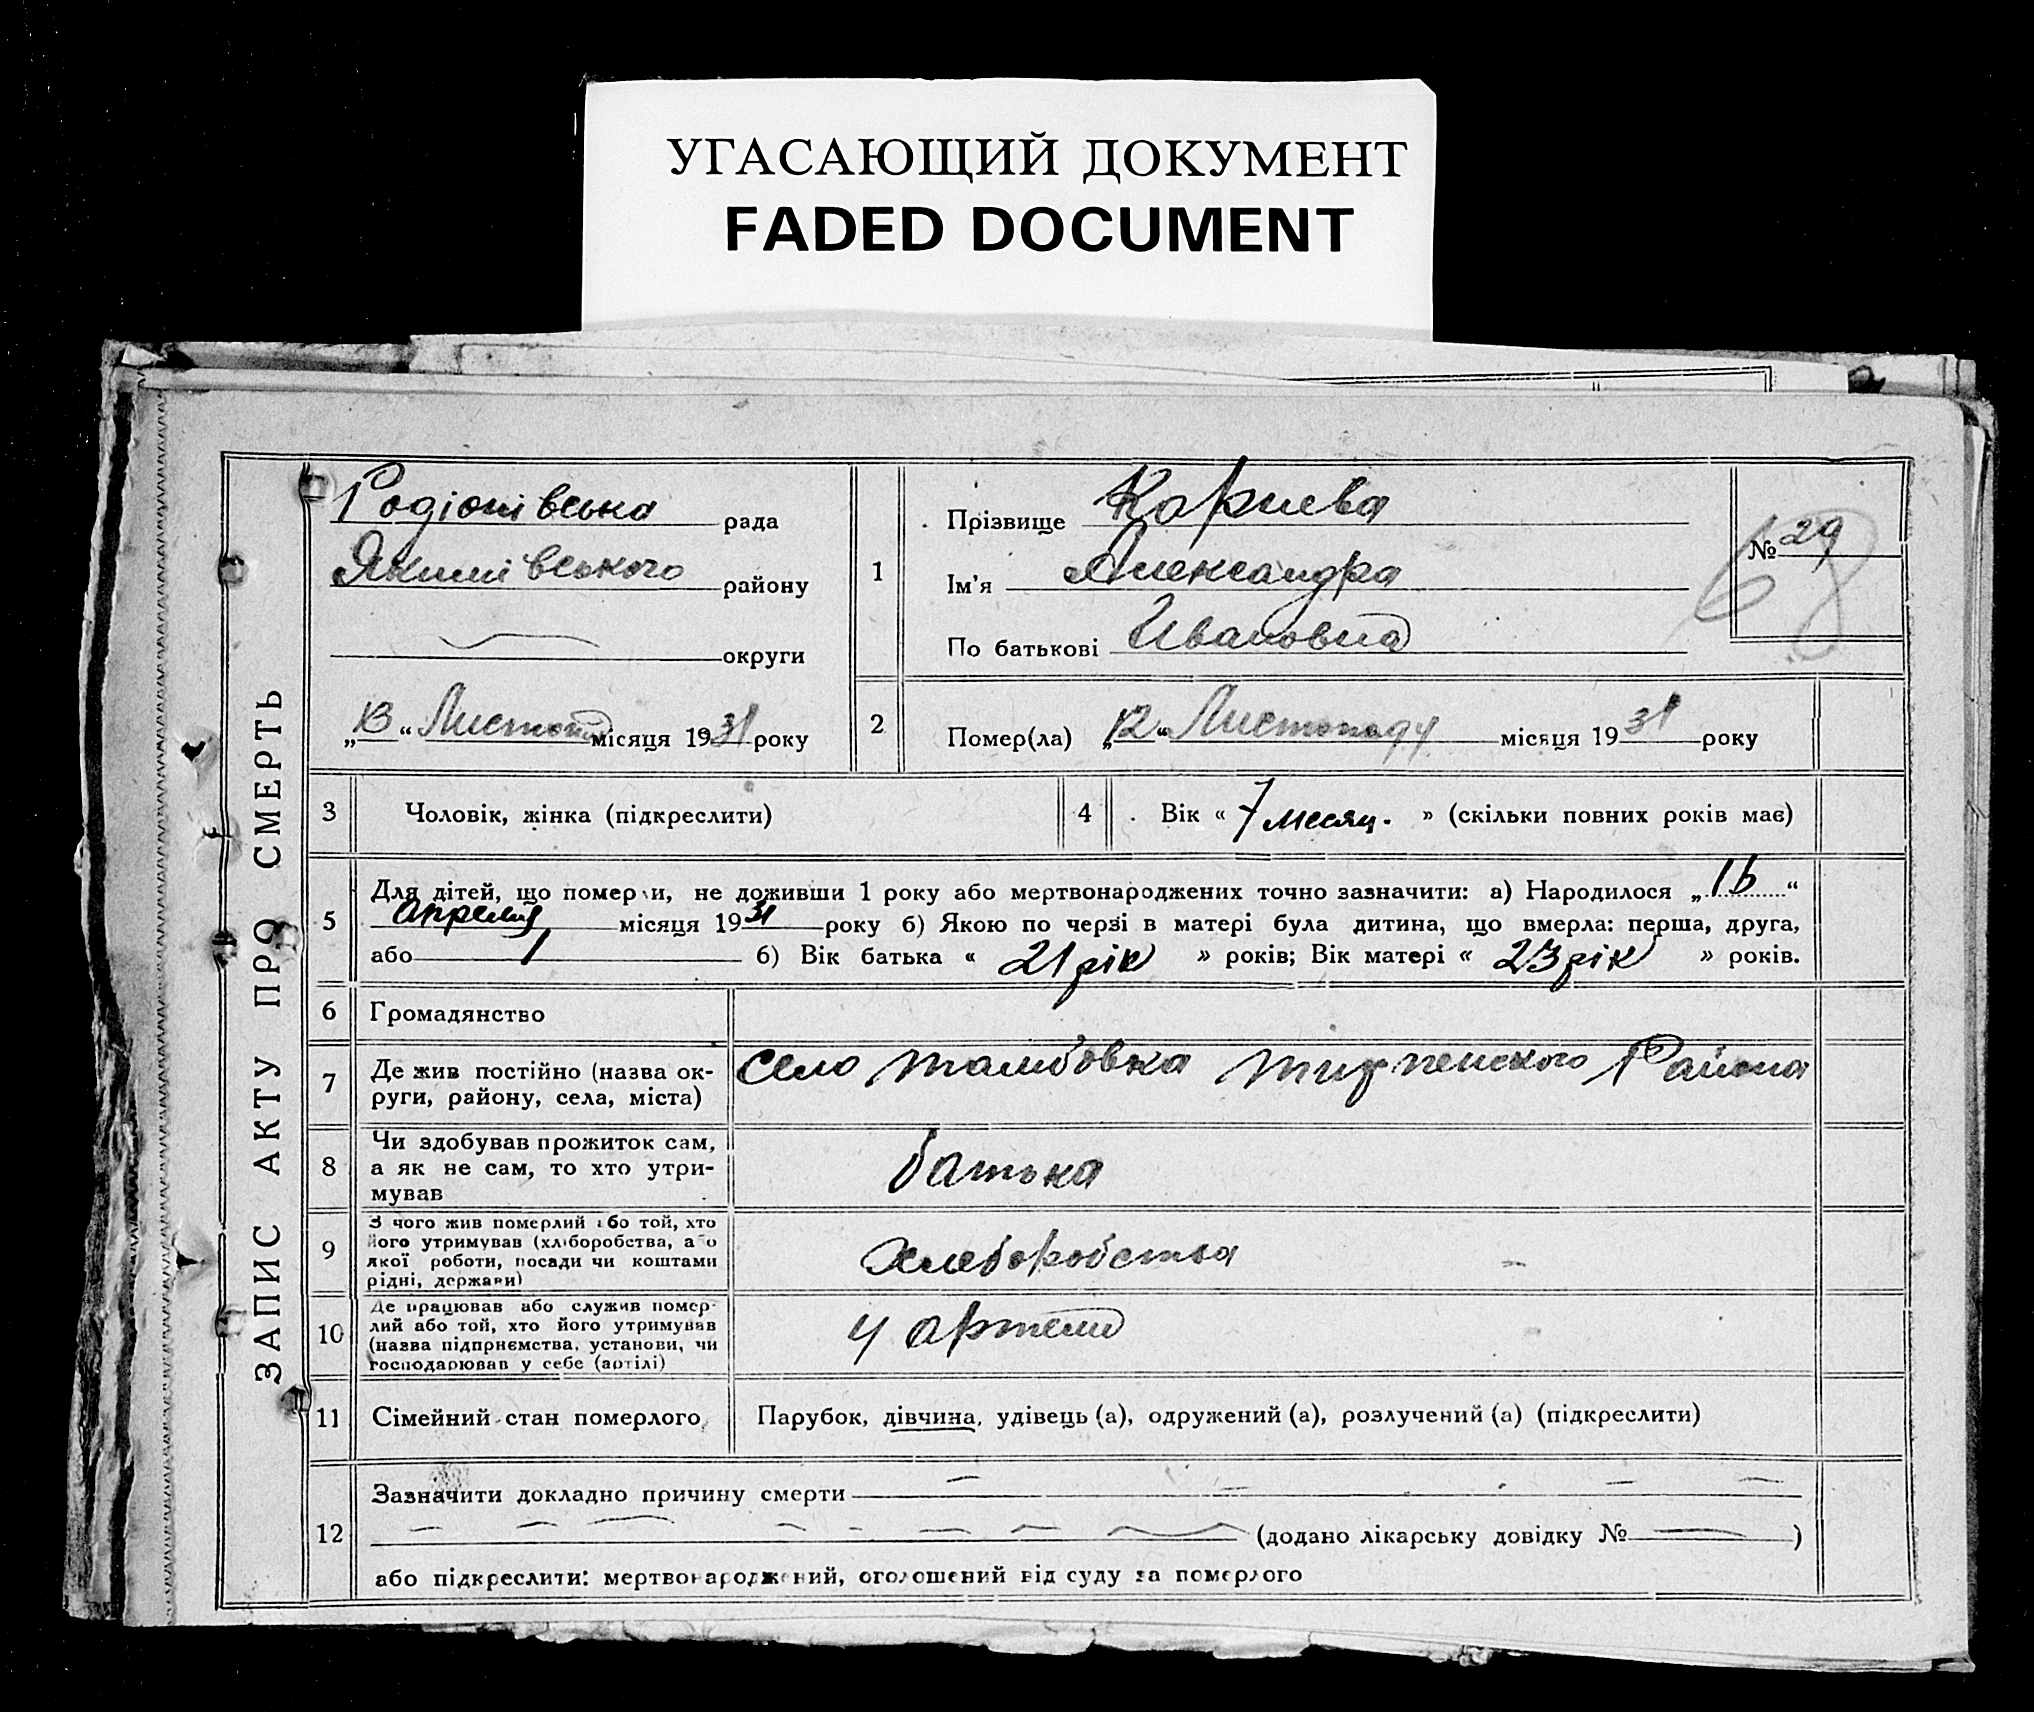 УГАСАЮЩИЙ ДОКУМЕНТ
FADED DOCUMENT
ЗАПИС АКТУ ПРО СМЕРТЬ
Родіонівська рада
Якимівського району
округи
„13“ Листопад місяця 1931 року
1
Прізвище Карпева
Ім'я Александра
По батькові Ивановна
№ 29
68
2 Помер(ла) „12“ Листопаду місяця 1931 року
3 Чоловік, жінка (підкреслити)
4 Вік « 7 месяц. » (скільки повних років має)
5 Для дітей, що померли, не доживши 1 року або мертвонароджених точно зазначити: а) Народилося „16“
апреля місяця 1931 року б) Якою по черзі в матері була дитина, що вмерла: перша, друга,
або 1 б) Вік батька « 21 рік » років; Вік матері « 23 рік » років.
6 Громадянство
7 Де жив постійно (назва ок-
руги, району, села, міста)
село Тамбовка Района
8 Чи здобував прожиток сам,
а як не сам, то хто утри-
мував
батька
9 З чого жив померлий або той, хто
його утримував (хліборобства, або
якої роботи, посади чи коштами
рідні, держави)
хлеборобства
10 Де працював або служив помер-
лий або той, хто його утримував
(назва підприємства, установи, чи
господарював у себе (артілі)
у артели
11 Сімейний стан померлого
Парубок, дівчина, удівець (а), одружений (а), розлучений (а) (підкреслити)
12 Зазначити докладно причину смерти
(додано лікарську довідку № )
або підкреслити: мертвонароджений, оголошений від суду за померлого